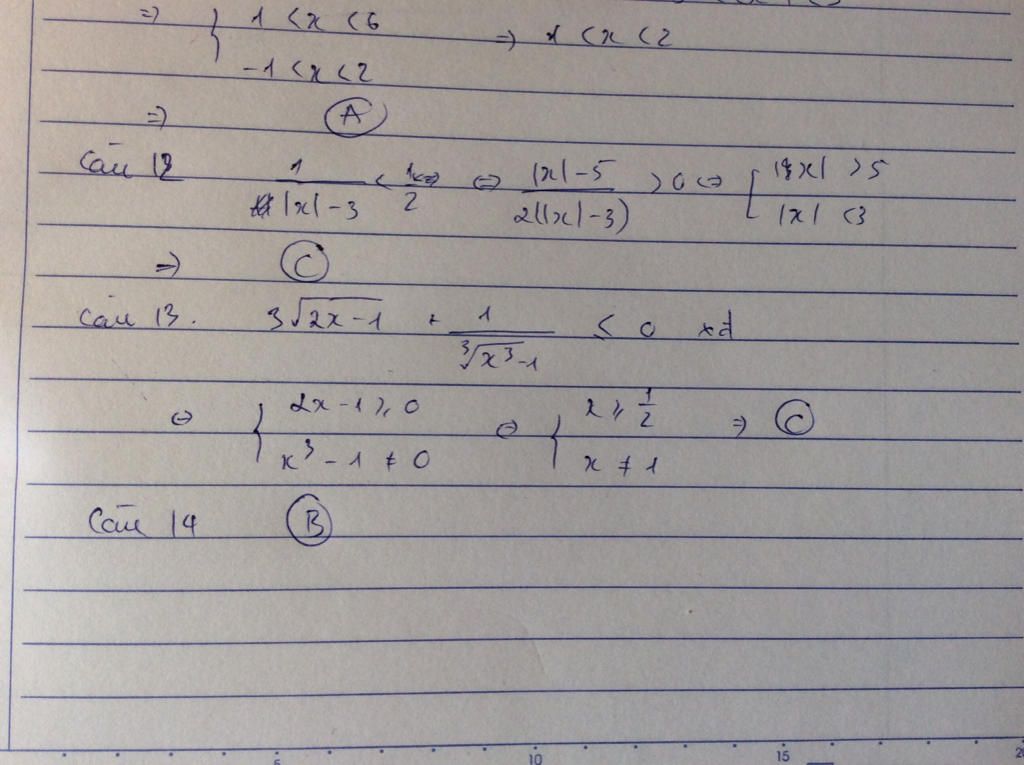 => { 1 < x < 6 => 1 < x < 2
-1 < x < 2
=> A
Câu 12 1/(|x| - 3) < 1/2 <=> (|x| - 5)/(2(|x| - 3)) > 0 <=> [ |x| > 5
|x| < 3
=> C
Câu 13. 3√(2x - 1) + 1/∛(x³ - 1) ≤ 0 xđ
<=> { 2x - 1 ≥ 0 <=> { x ≥ 1/2 => C
x³ - 1 ≠ 0 x ≠ 1
Câu 14 B
5 10 15 20